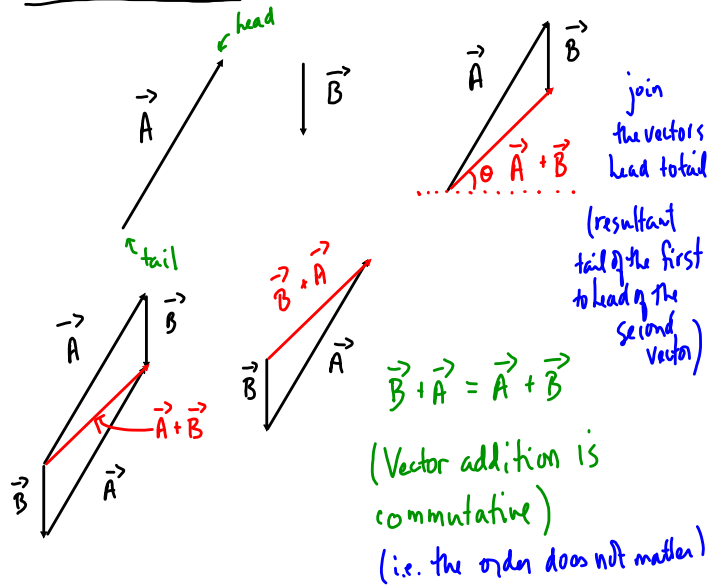 head
A⃗
B⃗
tail
A⃗
B⃗
θ A⃗ + B⃗
join
the vectors
head to tail
(resultant
tail of the first
to head of the
second
vector)
A⃗
B⃗
A⃗ + B⃗
B⃗
A⃗
B⃗ + A⃗
B⃗
A⃗
B⃗ + A⃗ = A⃗ + B⃗
(Vector addition is
commutative)
(i.e. the order does not matter)